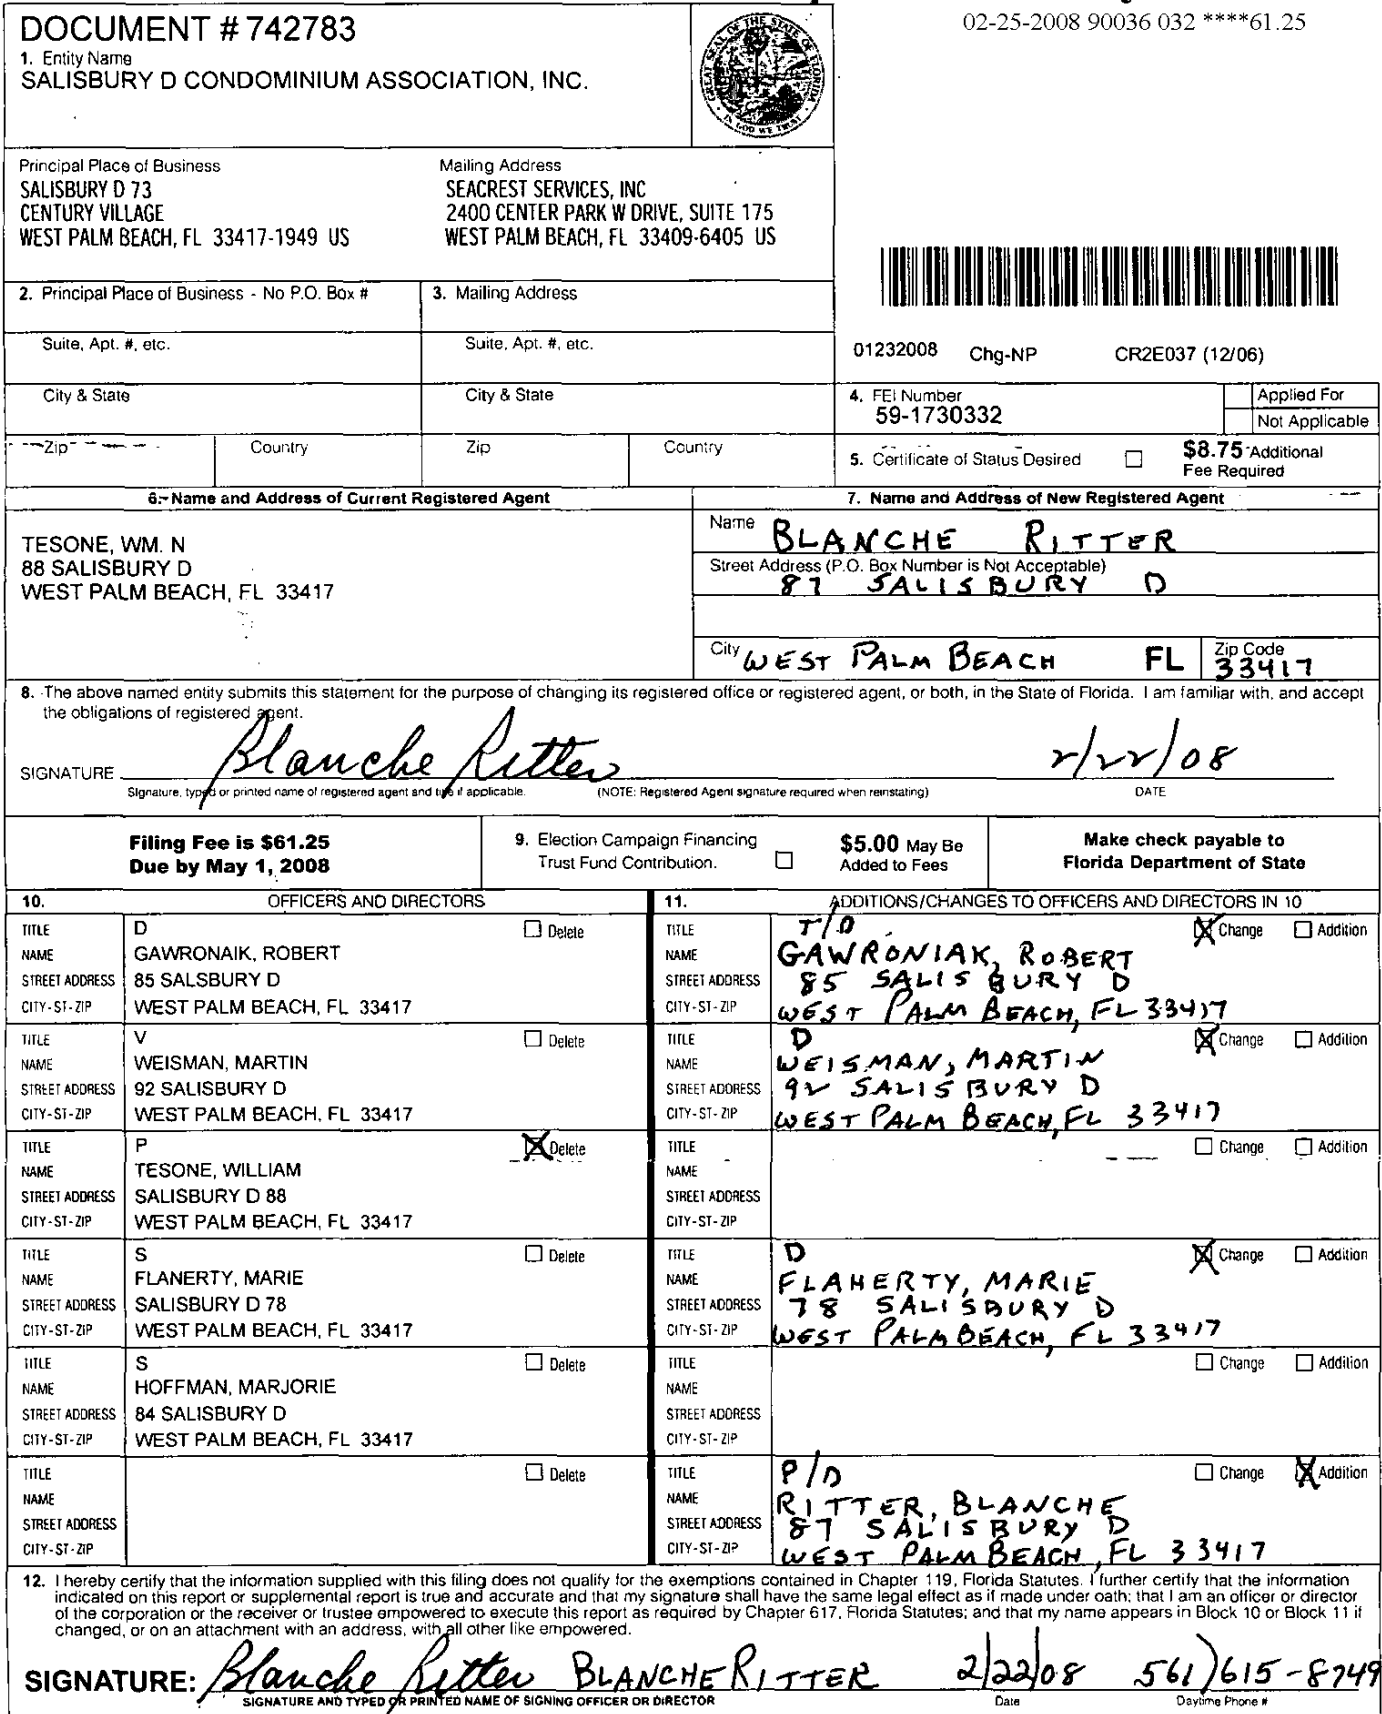 02-25-2008 90036 032 ****61.25
DOCUMENT # 742783
1. Entity Name
SALISBURY D CONDOMINIUM ASSOCIATION, INC.
GREAT SEAL OF THE STATE OF FLORIDA
IN GOD WE TRUST
Principal Place of Business
SALISBURY D 73
CENTURY VILLAGE
WEST PALM BEACH, FL 33417-1949 US
Mailing Address
SEACREST SERVICES, INC
2400 CENTER PARK W DRIVE, SUITE 175
WEST PALM BEACH, FL 33409-6405 US
2. Principal Place of Business - No P.O. Box #
3. Mailing Address
Suite, Apt. #, etc.
Suite, Apt. #, etc.
01232008 Chg-NP CR2E037 (12/06)
City & State
City & State
4. FEI Number
59-1730332
Applied For
Not Applicable
Zip
Country
Zip
Country
5. Certificate of Status Desired
$8.75 Additional
Fee Required
6. Name and Address of Current Registered Agent
7. Name and Address of New Registered Agent
TESONE, WM. N
88 SALISBURY D
WEST PALM BEACH, FL 33417
Name BLANCHE RITTER
Street Address (P.O. Box Number is Not Acceptable)
87 SALISBURY D
City WEST PALM BEACH FL Zip Code
33417
8. The above named entity submits this statement for the purpose of changing its registered office or registered agent, or both, in the State of Florida. I am familiar with, and accept
the obligations of registered agent.
SIGNATURE Blanche Ritter 2/22/08
Signature, typed or printed name of registered agent and title if applicable. (NOTE: Registered Agent signature required when reinstating) DATE
Filing Fee is $61.25
Due by May 1, 2008
9. Election Campaign Financing
Trust Fund Contribution.
$5.00 May Be
Added to Fees
Make check payable to
Florida Department of State
10. OFFICERS AND DIRECTORS
11. ADDITIONS/CHANGES TO OFFICERS AND DIRECTORS IN 10
TITLE D Delete
NAME GAWRONAIK, ROBERT
STREET ADDRESS 85 SALSBURY D
CITY-ST-ZIP WEST PALM BEACH, FL 33417
TITLE T/D Change Addition
NAME GAWRONIAK, ROBERT
STREET ADDRESS 85 SALISBURY D
CITY-ST-ZIP WEST PALM BEACH, FL 33417
TITLE V Delete
NAME WEISMAN, MARTIN
STREET ADDRESS 92 SALISBURY D
CITY-ST-ZIP WEST PALM BEACH, FL 33417
TITLE D Change Addition
NAME WEISMAN, MARTIN
STREET ADDRESS 92 SALISBURY D
CITY-ST-ZIP WEST PALM BEACH, FL 33417
TITLE P Delete
NAME TESONE, WILLIAM
STREET ADDRESS SALISBURY D 88
CITY-ST-ZIP WEST PALM BEACH, FL 33417
TITLE Change Addition
NAME
STREET ADDRESS
CITY-ST-ZIP
TITLE S Delete
NAME FLANERTY, MARIE
STREET ADDRESS SALISBURY D 78
CITY-ST-ZIP WEST PALM BEACH, FL 33417
TITLE D Change Addition
NAME FLAHERTY, MARIE
STREET ADDRESS 78 SALISBURY D
CITY-ST-ZIP WEST PALM BEACH, FL 33417
TITLE S Delete
NAME HOFFMAN, MARJORIE
STREET ADDRESS 84 SALISBURY D
CITY-ST-ZIP WEST PALM BEACH, FL 33417
TITLE Change Addition
NAME
STREET ADDRESS
CITY-ST-ZIP
TITLE Delete
NAME
STREET ADDRESS
CITY-ST-ZIP
TITLE P/D Change Addition
NAME RITTER, BLANCHE
STREET ADDRESS 87 SALISBURY D
CITY-ST-ZIP WEST PALM BEACH, FL 33417
12. I hereby certify that the information supplied with this filing does not qualify for the exemptions contained in Chapter 119, Florida Statutes. I further certify that the information
indicated on this report or supplemental report is true and accurate and that my signature shall have the same legal effect as if made under oath; that I am an officer or director
of the corporation or the receiver or trustee empowered to execute this report as required by Chapter 617, Florida Statutes; and that my name appears in Block 10 or Block 11 if
changed, or on an attachment with an address, with all other like empowered.
SIGNATURE: Blanche Ritter BLANCHE RITTER 2/22/08 561)615-8749
SIGNATURE AND TYPED OR PRINTED NAME OF SIGNING OFFICER OR DIRECTOR Date Daytime Phone #